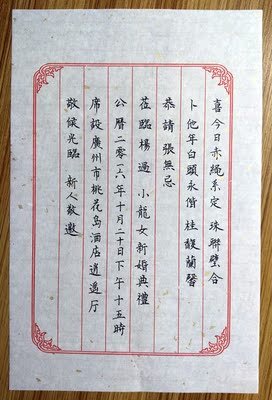 喜今日赤繩系定 珠聯璧合
卜他年白頭永偕 桂馥蘭馨
恭請 張無忌
莅臨楊過 小龍女新婚典禮
公曆二零一六年十月二十日下午十五時
席設廣州市桃花岛酒店逍遥厅
敬候光臨 新人敬邀